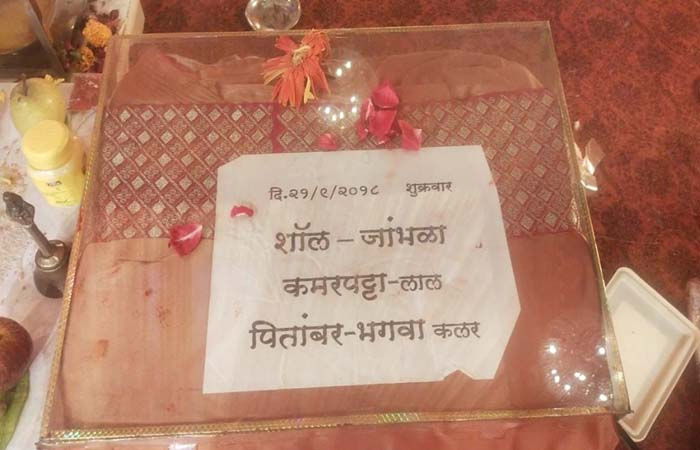 दि.२१/९/२०१८ शुक्रवार
शॉल – जांभळा
कमरपट्टा-लाल
पितांबर-भगवा कलर